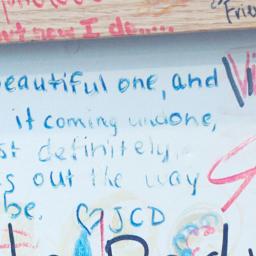 "Frie
't new I do.....
beautiful one, and
it coming undone,
st definitely,
s out the way
be. ♡ JCD